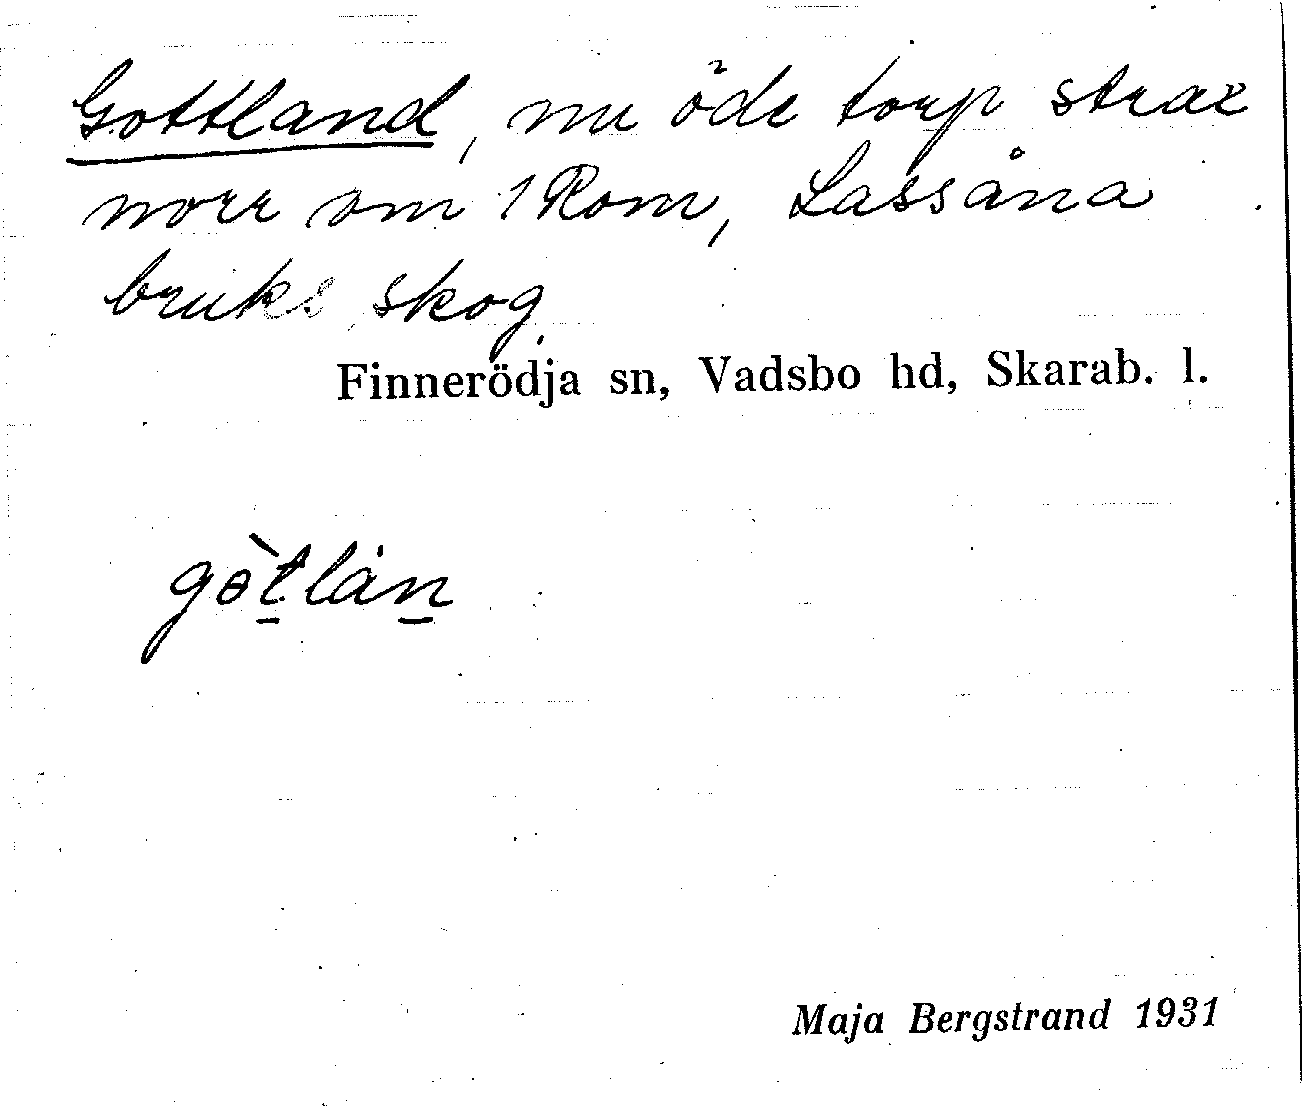 Gottland, nu öde torp strax
norr om 1 Rom, Lassåna
bruks skog
Finnerödja sn, Vadsbo hd, Skarab. l.
gɵ̀t̠làn̠
Maja Bergstrand 1931